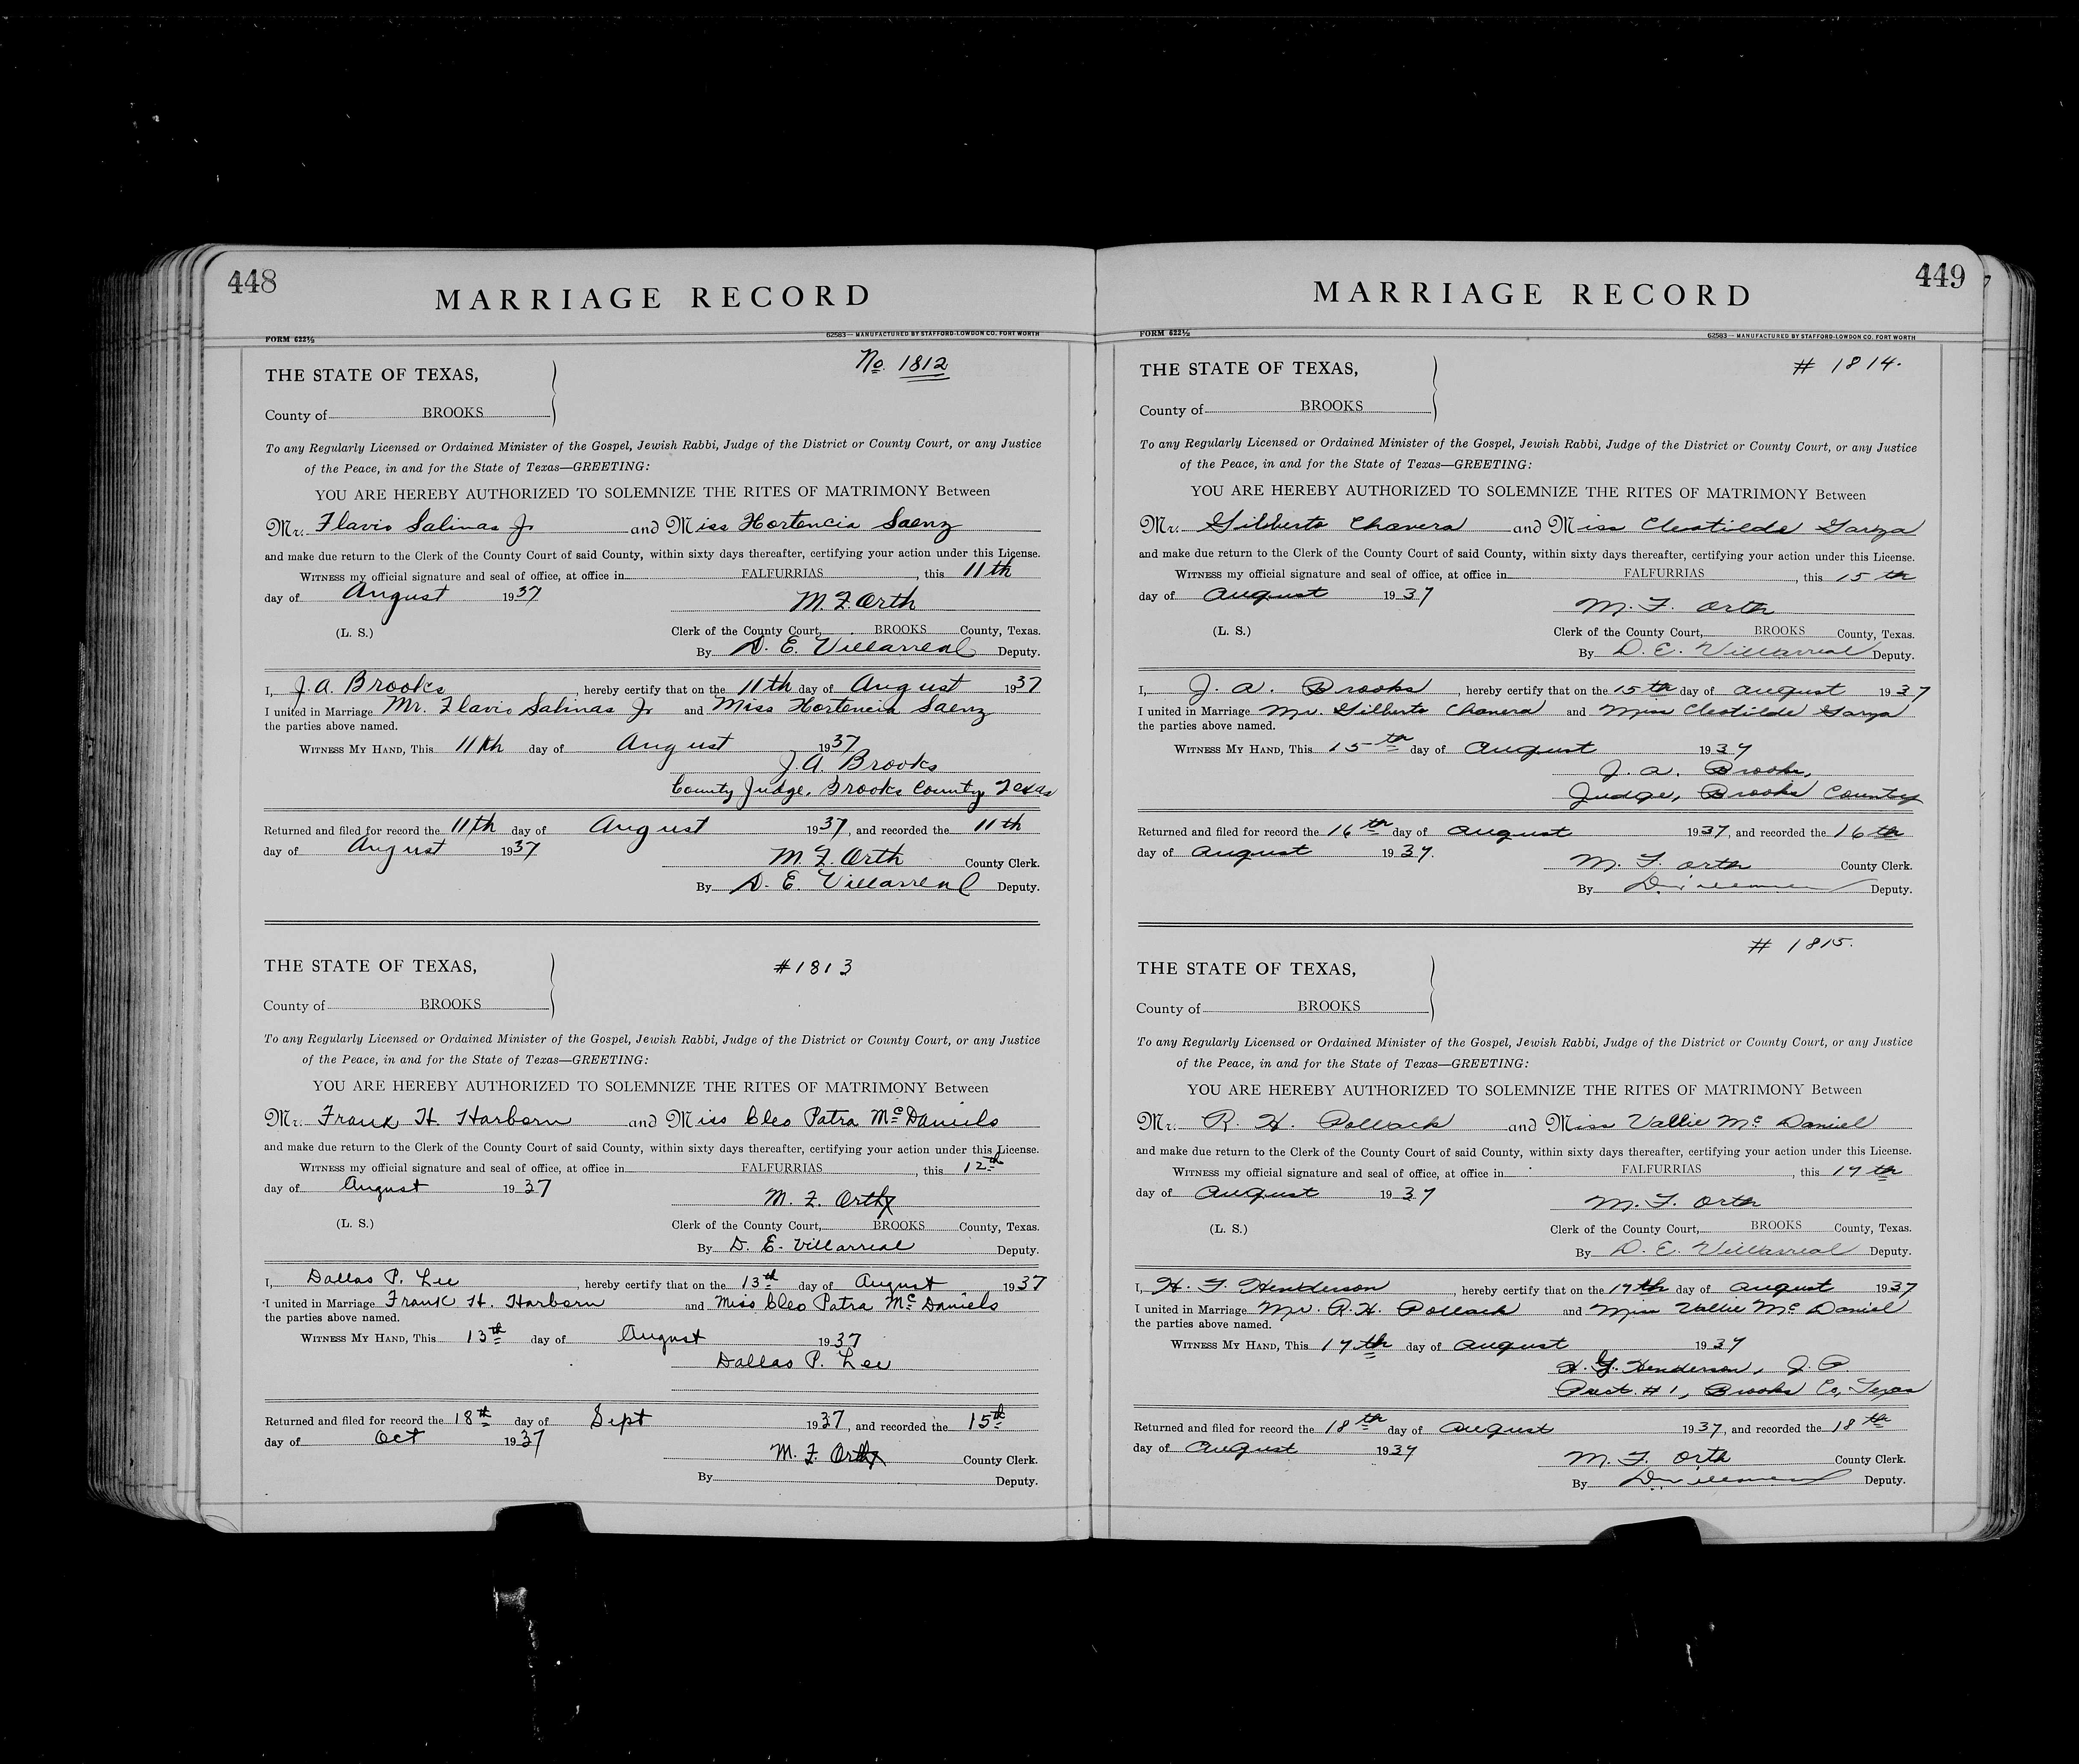 448
MARRIAGE RECORD
FORM 622½
62583—MANUFACTURED BY STAFFORD-LOWDON CO. FORT WORTH
No. 1812
THE STATE OF TEXAS,
County of BROOKS
To any Regularly Licensed or Ordained Minister of the Gospel, Jewish Rabbi, Judge of the District or County Court, or any Justice
of the Peace, in and for the State of Texas—GREETING:
YOU ARE HEREBY AUTHORIZED TO SOLEMNIZE THE RITES OF MATRIMONY Between
Mr. Flavio Salinas Jr and Miss Hortencia Saenz
and make due return to the Clerk of the County Court of said County, within sixty days thereafter, certifying your action under this License.
WITNESS my official signature and seal of office, at office in FALFURRIAS, this 11th
day of August 1937
M. F. Orth
(L. S.) Clerk of the County Court, BROOKS County, Texas.
By D. E. Villarreal Deputy.
I, J. A. Brooks, hereby certify that on the 11th day of August 1937
I united in Marriage Mr. Flavio Salinas Jr and Miss Hortencia Saenz
the parties above named.
WITNESS MY HAND, This 11th day of August 1937
J. A. Brooks
County Judge, Brooks County, Texas
Returned and filed for record the 11th day of August 1937, and recorded the 11th
day of August 1937
M. F. Orth County Clerk.
By D. E. Villarreal Deputy.
#1813
THE STATE OF TEXAS,
County of BROOKS
To any Regularly Licensed or Ordained Minister of the Gospel, Jewish Rabbi, Judge of the District or County Court, or any Justice
of the Peace, in and for the State of Texas—GREETING:
YOU ARE HEREBY AUTHORIZED TO SOLEMNIZE THE RITES OF MATRIMONY Between
Mr. Frank H. Harborn and Miss Cleo Patra McDaniels
and make due return to the Clerk of the County Court of said County, within sixty days thereafter, certifying your action under this License.
WITNESS my official signature and seal of office, at office in FALFURRIAS, this 12th
day of August 1937
M. F. Orth
(L. S.) Clerk of the County Court, BROOKS County, Texas.
By D. E. Villarreal Deputy.
I, Dallas P. Lee, hereby certify that on the 13th day of August 1937
I united in Marriage Frank H. Harborn and Miss Cleo Patra McDaniels
the parties above named.
WITNESS MY HAND, This 13th day of August 1937
Dallas P. Lee
Returned and filed for record the 18th day of Sept 1937, and recorded the 15th
day of Oct 1937
M. F. Orth County Clerk.
By Deputy.
449
MARRIAGE RECORD
FORM 622½
62583—MANUFACTURED BY STAFFORD-LOWDON CO. FORT WORTH
# 1814.
THE STATE OF TEXAS,
County of BROOKS
To any Regularly Licensed or Ordained Minister of the Gospel, Jewish Rabbi, Judge of the District or County Court, or any Justice
of the Peace, in and for the State of Texas—GREETING:
YOU ARE HEREBY AUTHORIZED TO SOLEMNIZE THE RITES OF MATRIMONY Between
Mr. Gilberto Chavera and Miss Cleotilde Garza
and make due return to the Clerk of the County Court of said County, within sixty days thereafter, certifying your action under this License.
WITNESS my official signature and seal of office, at office in FALFURRIAS, this 15th
day of August 1937
M. F. Orth
(L. S.) Clerk of the County Court, BROOKS County, Texas.
By D. E. Villarreal Deputy.
I, J. A. Brooks, hereby certify that on the 15th day of August 1937
I united in Marriage Mr. Gilberto Chavera and Miss Cleotilde Garza
the parties above named.
WITNESS MY HAND, This 15th day of August 1937
J. A. Brooks,
Judge, Brooks County
Returned and filed for record the 16th day of August 1937, and recorded the 16th
day of August 1937.
M. F. Orth County Clerk.
By Deputy.
# 1815.
THE STATE OF TEXAS,
County of BROOKS
To any Regularly Licensed or Ordained Minister of the Gospel, Jewish Rabbi, Judge of the District or County Court, or any Justice
of the Peace, in and for the State of Texas—GREETING:
YOU ARE HEREBY AUTHORIZED TO SOLEMNIZE THE RITES OF MATRIMONY Between
Mr. R. H. Pollack and Miss Vallie Mc Daniel
and make due return to the Clerk of the County Court of said County, within sixty days thereafter, certifying your action under this License.
WITNESS my official signature and seal of office, at office in FALFURRIAS, this 17th
day of August 1937
M. F. Orth
(L. S.) Clerk of the County Court, BROOKS County, Texas.
By D. E. Villarreal Deputy.
I, H. F. Henderson, hereby certify that on the 17th day of August 1937
I united in Marriage Mr. R. H. Pollack and Miss Vallie Mc Daniel
the parties above named.
WITNESS MY HAND, This 17th day of August 1937
Henderson, J. P.
Prect. #1, Brooks Co, Texas
Returned and filed for record the 18th day of August 1937, and recorded the 18th
day of August 1937
M. F. Orth County Clerk.
By Deputy.